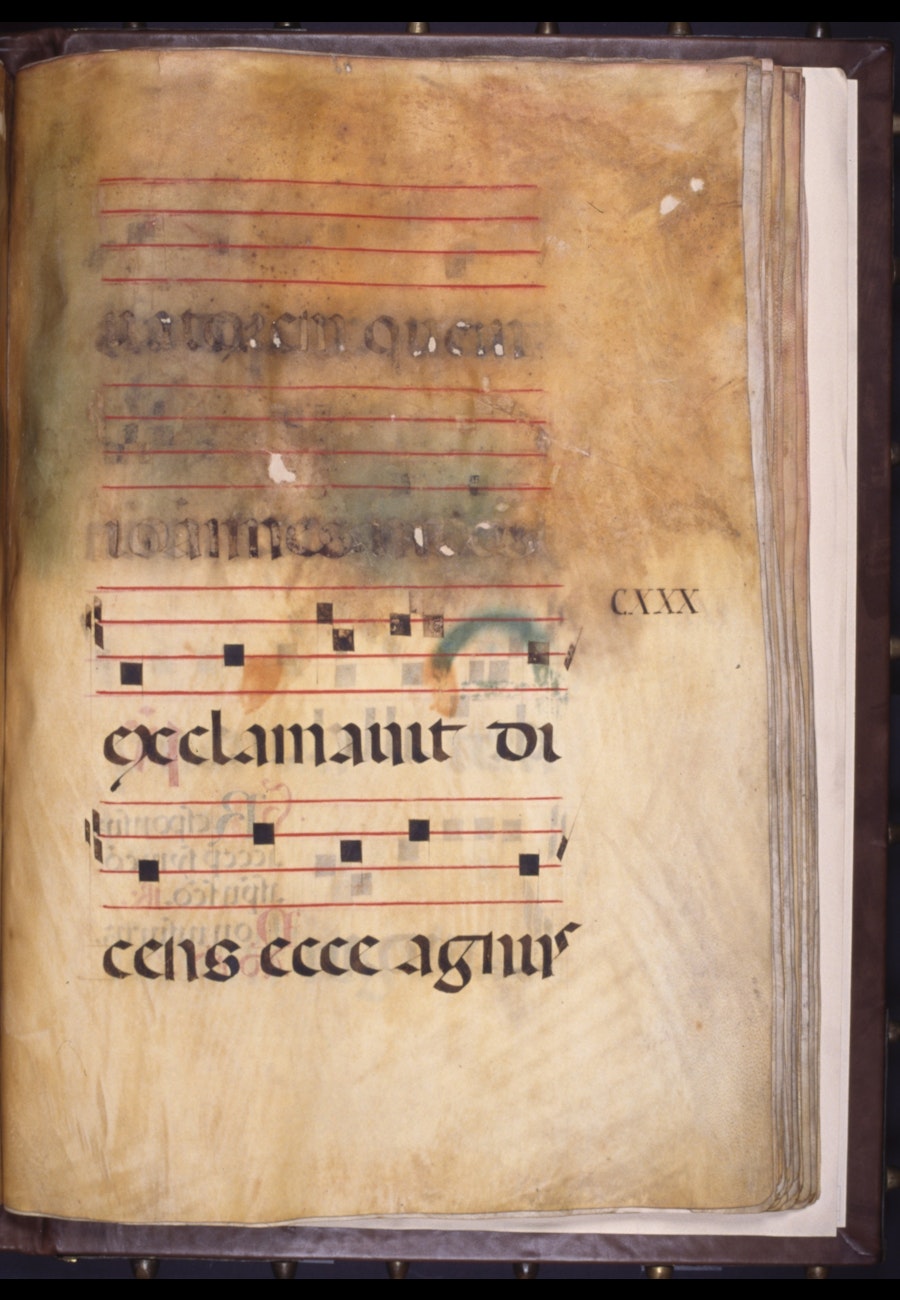 uatorem quem
ioannes uidens
CXXX
exclamauit di
cens ecce agnus